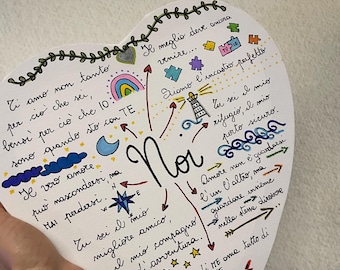 Il meglio deve ancora
venire...
Ti amo non tanto
per ciò che sei,
bensì per ciò che IO
sono quando sto con TE
Siamo l'incastro perfetto
Tu sei il mio
rifugio, il mio
porto sicuro.
Noi
Il vero amore
può nascondersi, ma
mai perdersi.
Amore non è guardarsi
l'un l'altro, ma
guardare insieme
nella stessa direzione
Tu sei il mio
migliore amico,
il mio compagno
d'avventura.
ME ama tutto di